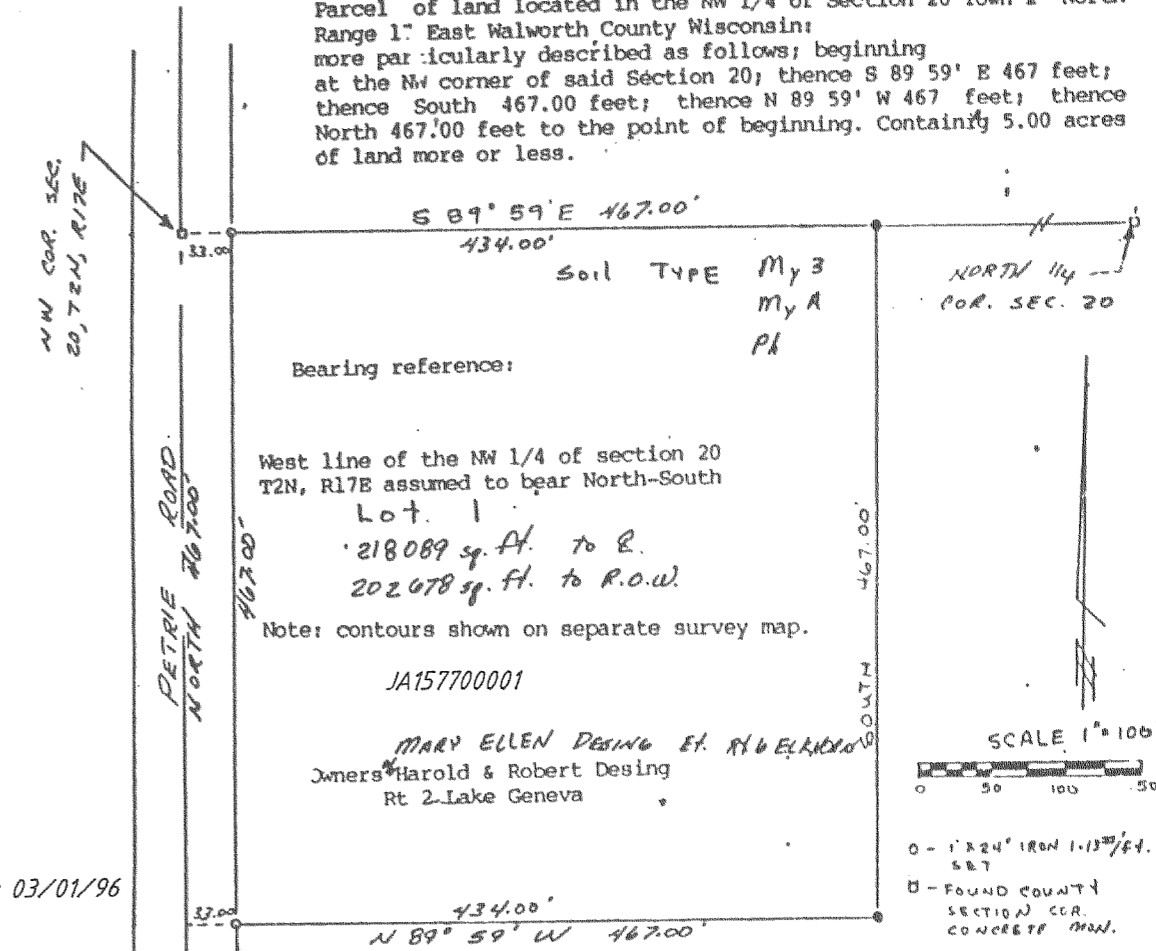 Parcel of land located in the NW 1/4 of Section 20 Town 2 North
Range 17 East Walworth County Wisconsin:
more par icularly described as follows; beginning
at the NW corner of said Section 20; thence S 89 59' E 467 feet;
thence South 467.00 feet; thence N 89 59' W 467 feet; thence
North 467.00 feet to the point of beginning. Containig 5.00 acres
of land more or less.
NW COR. SEC.
20, T2N, R17E
S 89° 59' E 467.00'
33.00
434.00'
Soil TYPE My B
My A
Ph
NORTH 1/4
COR. SEC. 20
Bearing reference:
West line of the NW 1/4 of section 20
T2N, R17E assumed to bear North-South
Lot. 1
218089 sq. ft. to
202678 sq. ft. to R.O.W.
PETRIE ROAD
NORTH 467.00'
467.00'
467.00'
SOUTH
Note: contours shown on separate survey map.
JA157700001
MARY ELLEN DESING
Owners Harold & Robert Desing
Rt 2 Lake Geneva
SCALE 1" = 100
0 50 100 150
O - 1" X 24" IRON 1.13#/ft.
SET
FOUND COUNTY
SECTION COR.
CONCRETE MON.
03/01/96
33.00
434.00'
N 89° 59' W 467.00'